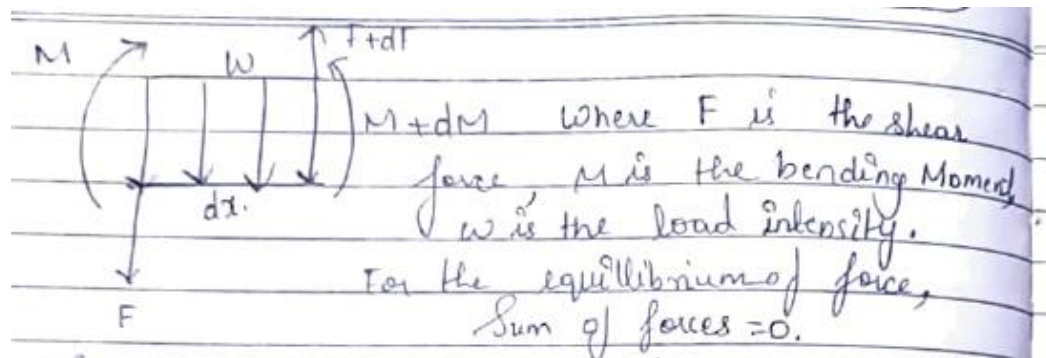 M W F+dF
M+dM where F is the shear
force, M is the bending Moment,
dx. w is the load intensity.
For the equillibrium of force,
F Sum of forces =0.